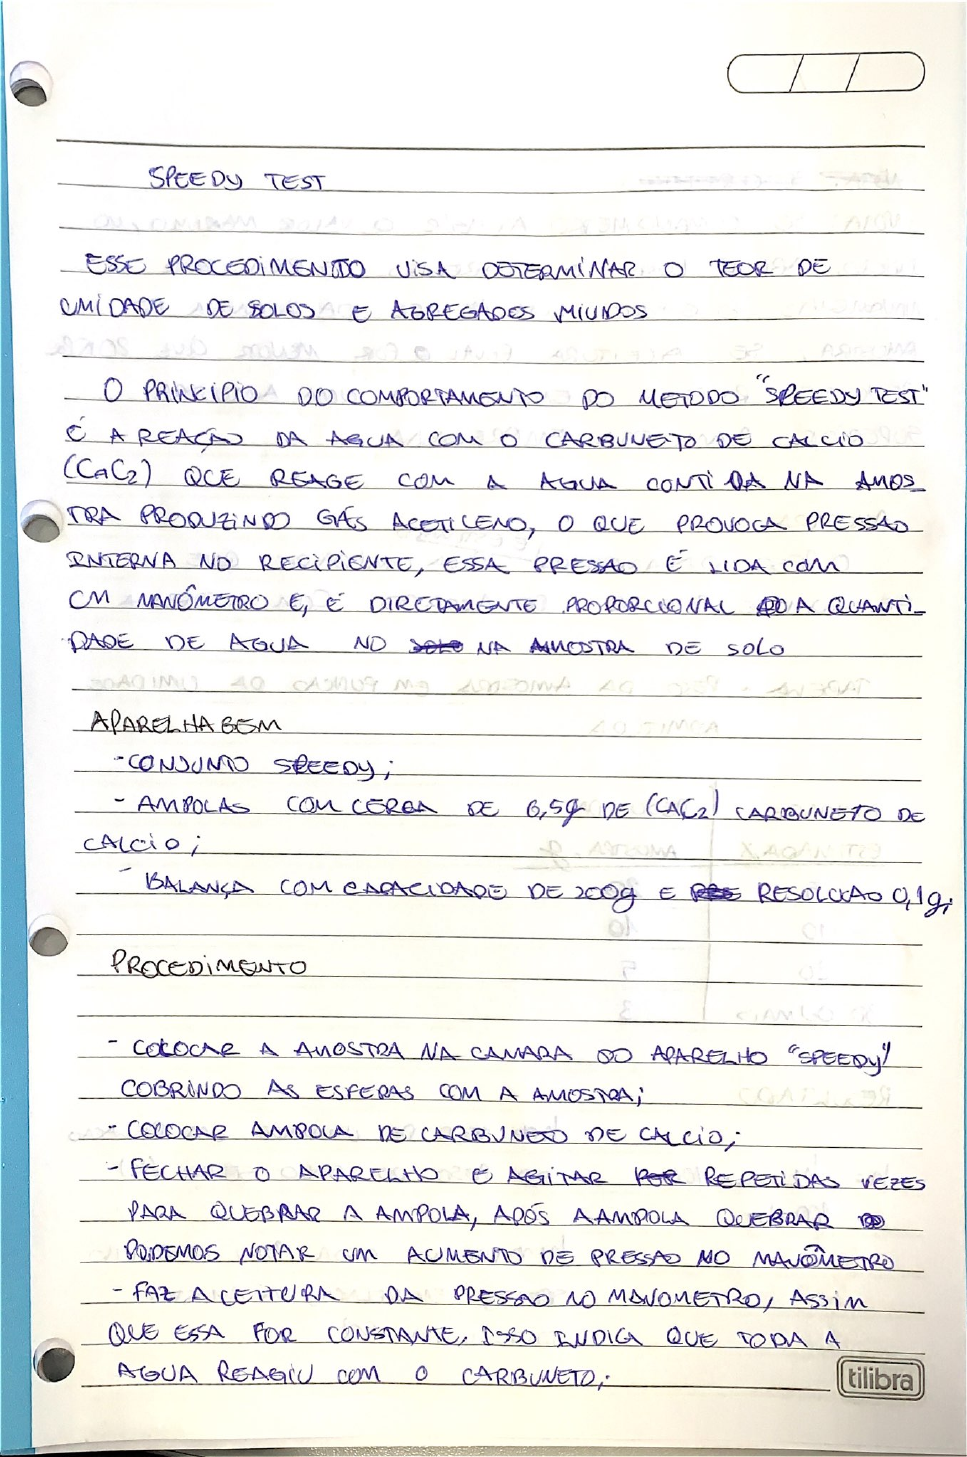 SPEEDY TEST
ESSE PROCEDIMENTO VISA DETERMINAR O TEOR DE
UMIDADE DE SOLOS E AGREGADES MIUDOS
O PRINCÍPIO DO COMPORTAMENTO DO METODO "SPEEDY TEST"
É A REAÇÃO DA AGUA COM O CARBUNETO DE CALCIO
(CaC2) QUE REAGE COM A AGUA CONTIDA NA AMOS_
TRA PRODUZINDO GÁS ACETILENO, O QUE PROVOCA PRESSÃO
INTERNA NO RECIPIENTE, ESSA PRESSAO É LIDA COM
UM MANÔMETRO E, É DIRETAMENTE PROPORCIONAL A QUANTI_
DADE DE AGUA NO NA AMOSTRA DE SOLO
APARELHAGEM
- CONJUNTO SPEEDY;
- AMPOLAS COM CERCA DE 6,5g DE (CAC2) CARBUNETO DE
CALCIO;
- BALANÇA COM CAPACIDADE DE 200g E RESOLUÇÃO 0,1g;
PROCEDIMENTO
- COLOCAR A AMOSTRA NA CAMARA DO APARELHO "SPEEDY"
COBRINDO AS ESFERAS COM A AMOSTRA;
- COLOCAR AMPOLA DE CARBUNETO DE CALCIO;
- FECHAR O APARELHO E AGITAR REPETIDAS VEZES
PARA QUEBRAR A AMPOLA, APÓS A AMPOLA QUEBRAR
PODEMOS NOTAR UM AUMENTO DE PRESSÃO NO MANÔMETRO
- FAZ A LEITURA DA PRESSAO NO MANOMETRO, ASSIM
QUE ESSA FOR CONSTANTE, ISSO INDICA QUE TODA A
AGUA REAGIU COM O CARBUNETO;
tilibra